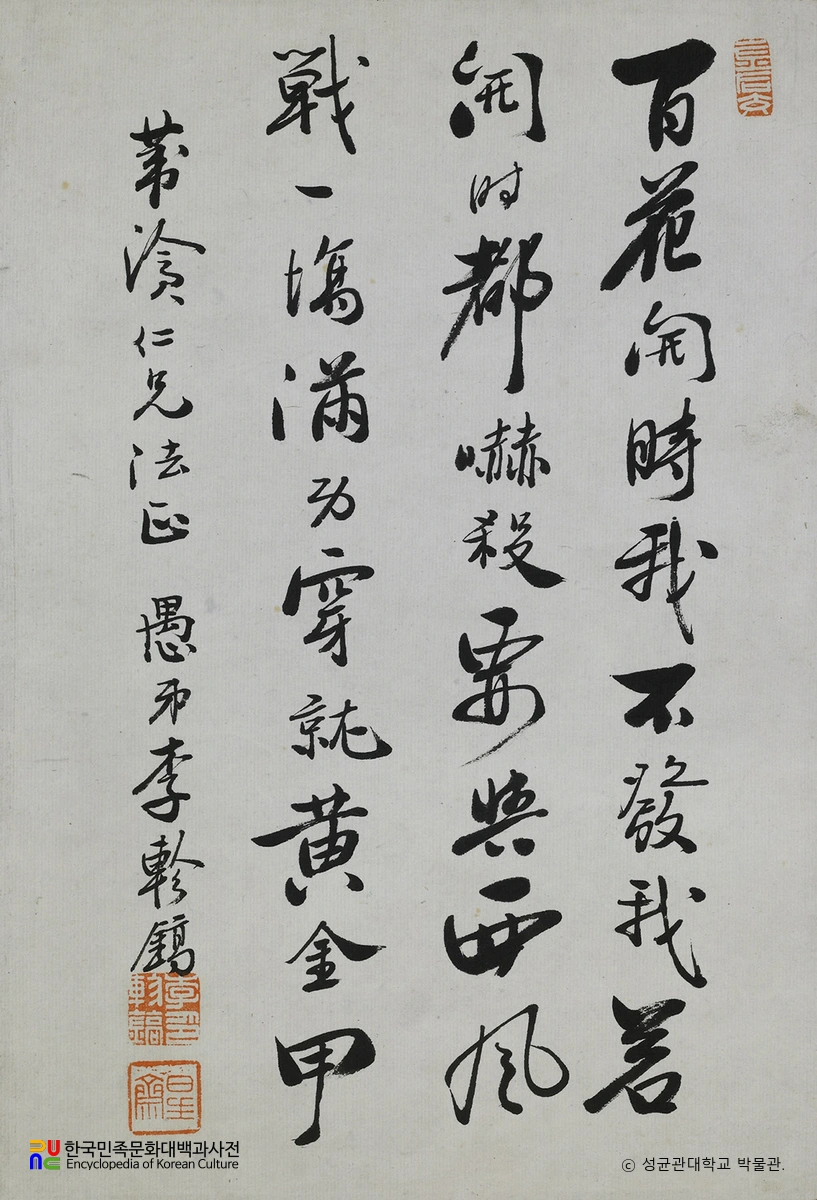 百花開時我不發我若
開時都嚇殺要與西風
戰一塲滿身穿就黃金甲
葦滄仁兄法正 愚弟李軫鎬
한국민족문화대백과사전
Encyclopedia of Korean Culture
© 성균관대학교 박물관.